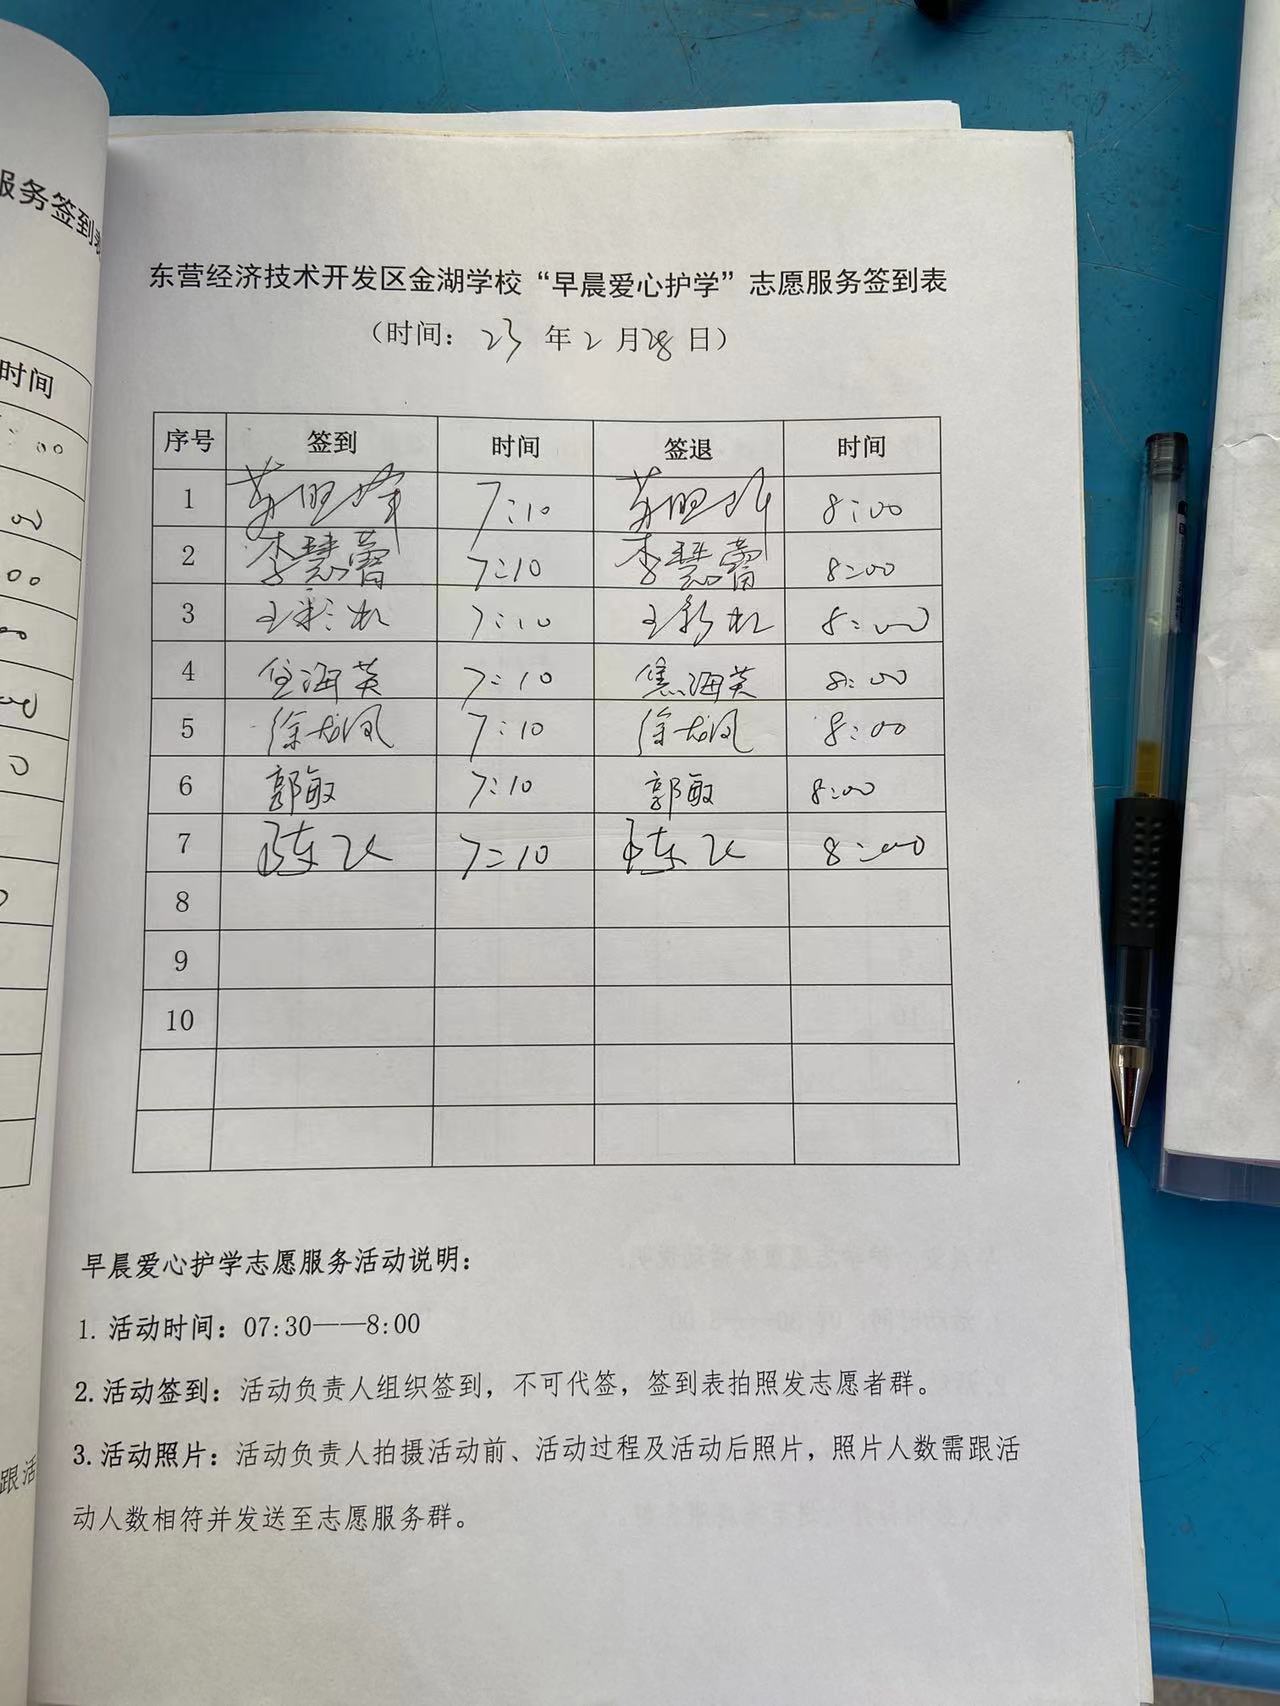 服务签到表
时间
00
00
00
东营经济技术开发区金湖学校“早晨爱心护学”志愿服务签到表
（时间：23年2月28日）
序号 签到 时间 签退 时间
1 7:10 8:00
2 李慧蕾 7:10 李慧蕾 8:00
3 7:10 8:00
4 焦海英 7:10 焦海英 8:00
5 徐龙凤 7:10 徐龙凤 8:00
6 郭敏 7:10 郭敏 8:00
7 陈飞 7:10 陈飞 8:00
8
9
10
早晨爱心护学志愿服务活动说明：
1. 活动时间：07:30——8:00
2. 活动签到：活动负责人组织签到，不可代签，签到表拍照发志愿者群。
3. 活动照片：活动负责人拍摄活动前、活动过程及活动后照片，照片人数需跟活
动人数相符并发送至志愿服务群。
跟活